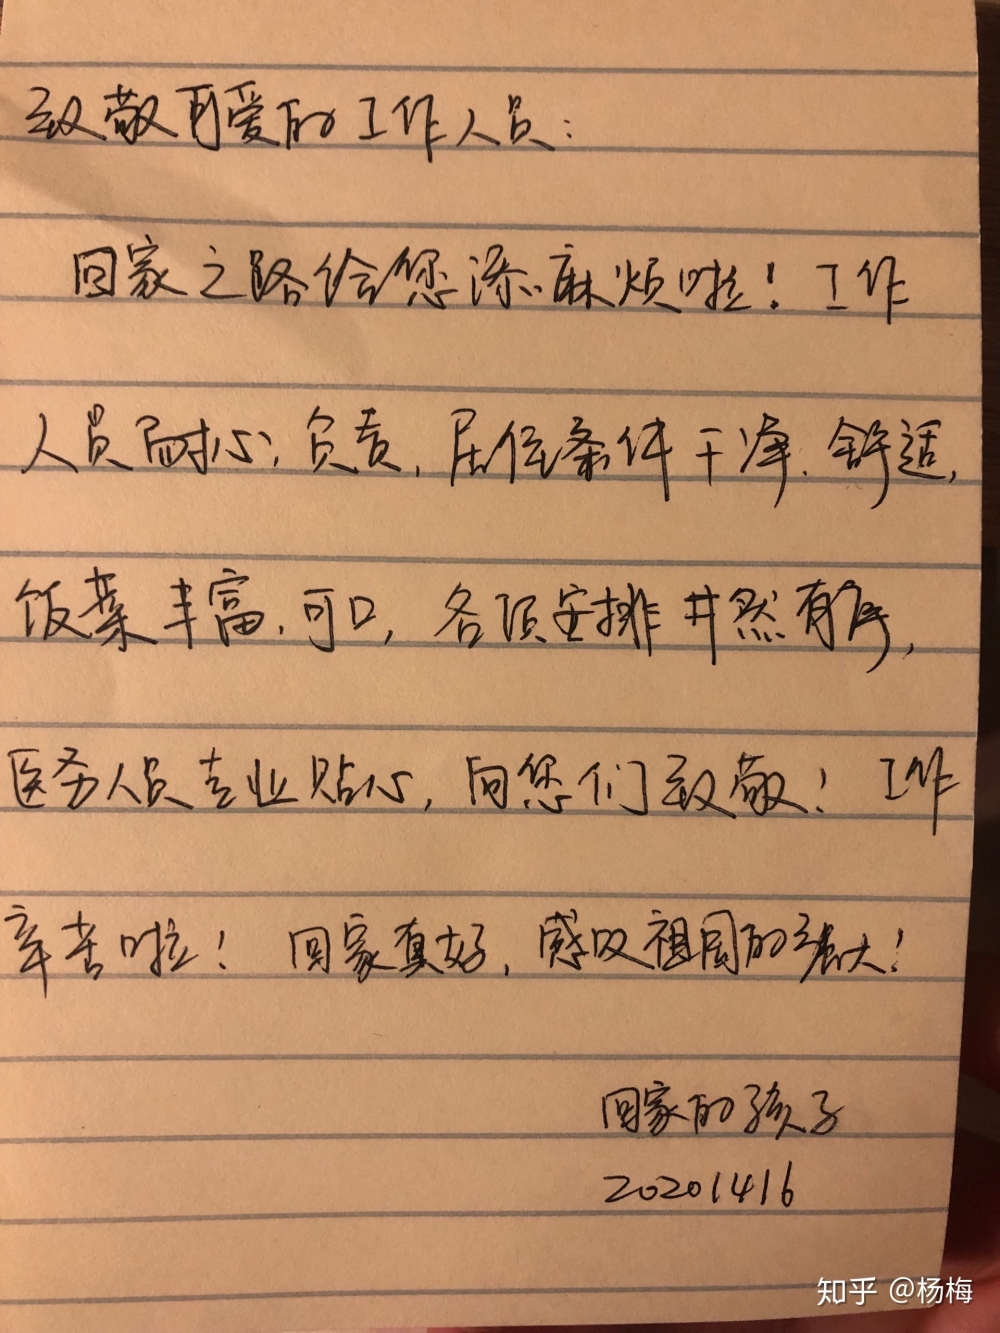 致敬可爱的工作人员：
回家之路给您添麻烦啦！工作
人员耐心，负责，居住条件干净、舒适，
饭菜丰富、可口，各项安排井然有序，
医务人员专业贴心，向您们致敬！工作
辛苦啦！回家真好，感叹祖国的强大！
回家的孩子
2020/4/16
知乎 @杨梅